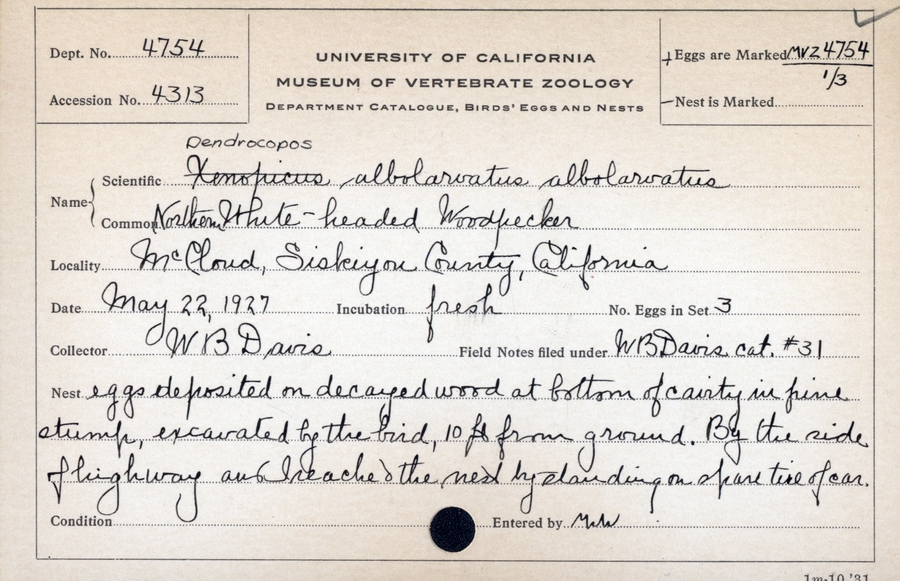 Dept. No. 4754
Accession No. 4313
UNIVERSITY OF CALIFORNIA
MUSEUM OF VERTEBRATE ZOOLOGY
DEPARTMENT CATALOGUE, BIRDS' EGGS AND NESTS
Eggs are Marked MVZ 4754
1/3
Nest is Marked
Dendrocopos
Name
Scientific Xenopicus albolarvatus albolarvatus
Common Northern White-headed Woodpecker
Locality McCloud, Siskiyou County, California
Date May 22, 1927 Incubation fresh No. Eggs in Set 3
Collector W B Davis Field Notes filed under WBDavis cat. #31
Nest eggs deposited on decayed wood at bottom of cavity in pine
stump, excavated by the bird, 10 ft from ground. By the side
of highway and I reached the nest by standing on spare tire of car.
Condition Entered by
1m-10-'31